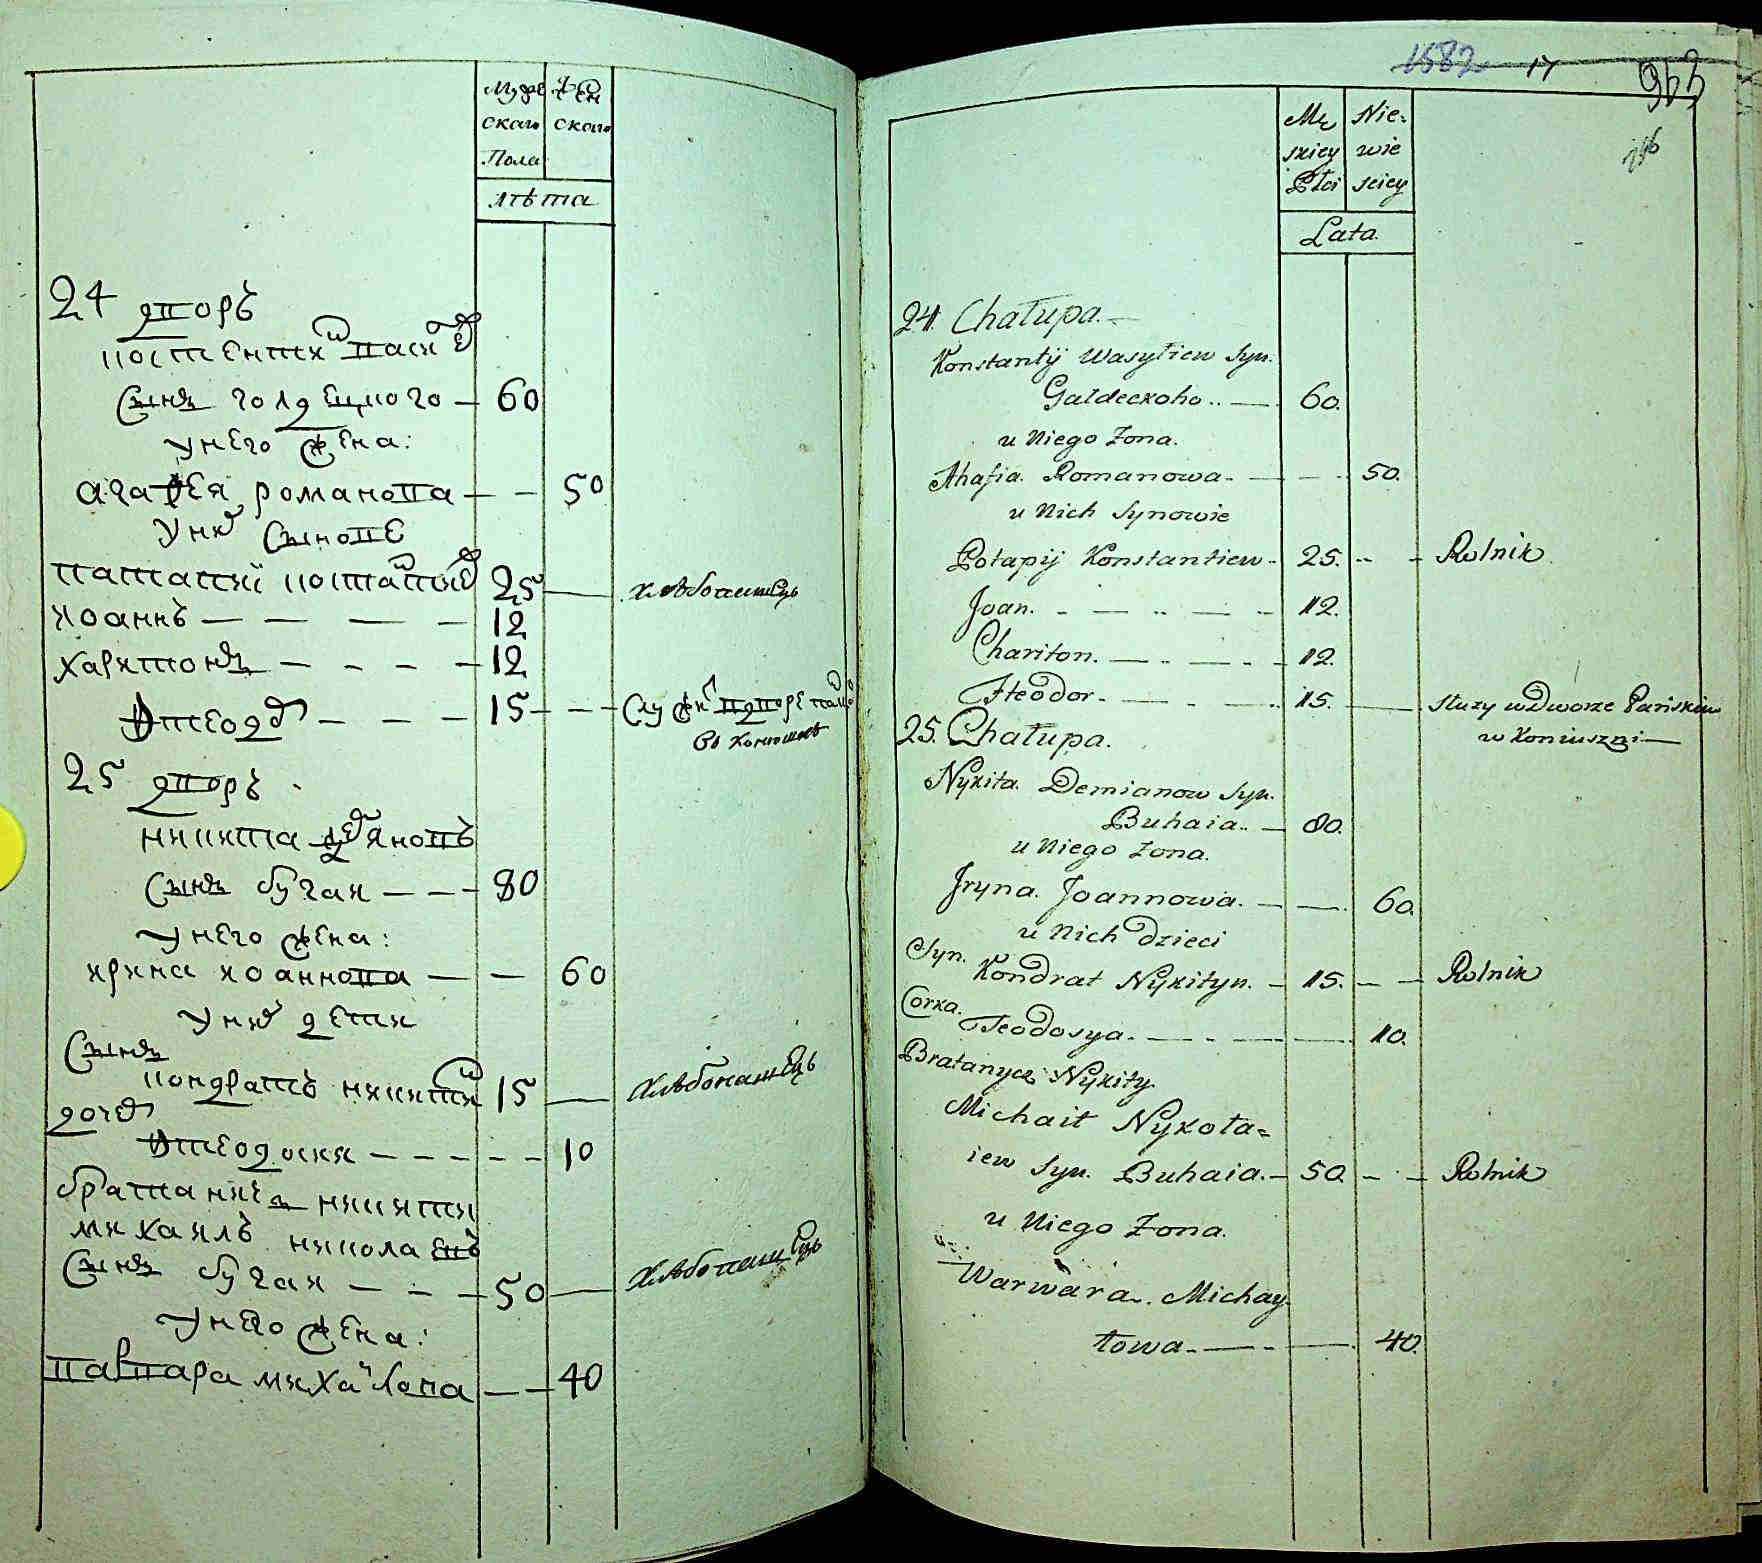 Мужескаго Пола
Женскаго
лѣта
24 дворъ
костентин васил
сынъ голдецкого — 60
у него жена:
агафея романова — — 50
у них сынове
патапий костантинов 25 — хлѣбопашецъ
иоаннъ — — — — 12
харитонъ — — — — 12
Өтеодор — — — 15 — — Служит вдворе панском
въ конюшнѣ
25 дворъ
никита демяновъ
сынъ бугаи — — — 80
у него жена:
ирина иоаннова — — 60
у них дети
сынъ
кондратъ никитин 15 — хлѣбопашецъ
дочер
Өтеодосия — — — — — 10
братаничъ никити
михаилъ николаевъ
сынъ бугаи — — — 50 — хлѣбопашецъ
у него жена:
варвара михайлова — — 40
1582 17
946
Mę
skiey
Płci
Nie-
wie
sciey
Lata.
24. Chałupa. —
Konstantÿ Wasyliew Syn.
Gałdeckoho .. — 60.
u Niego Zona.
Ahafia. Romanowa. — — 50.
u Nich Synowie
Potapij Konstantiew - 25. - - Rolnik
Joan. - — .. — .. - 12.
Chariton. — .. — . - - 12.
Fteodor - — . - — . 15. — słuzy w Dworze Pańskim
w Koniuszni —
25. Chałupa.
Nÿkita. Demianow Syn.
Buhaia.. — 80.
u Niego Zona.
Jryna. Joannowa. — — 60.
u Nich dzieci
Syn.
Kondrat Nÿkityn. — 15. — — Rolnik
Corka.
Fteodosya. — .. — — 10.
Bratanycz Nÿkity.
Michaił Nÿkoła=
iew Syn. Buhaia. — 50. - — Rolnik
u Niego Zona.
Warwara. Michay
łowa - — - — 40.